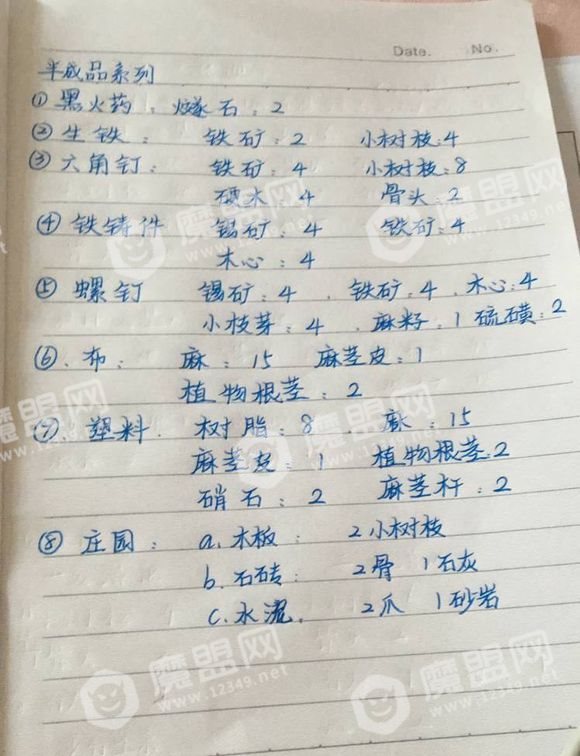 Date. No.
半成品系列
① 黑火药：燧石：2
② 生铁： 铁矿：2 小树枝：4
③ 六角钉： 铁矿：4 小树枝：8
硬木：4 骨头：2
④ 铁铸件 锡矿：4 铁矿：4
木心：4
⑤ 螺钉 锡矿：4 ，铁矿：4 ，木心：4
小枝芽：4 ，麻籽：1 硫磺：2
⑥、布： 麻：15 麻茎皮：1
植物根茎：2
⑦ 塑料. 树脂：8 麻：15
麻茎皮：1 植物根茎：2
硝石：2 麻茎杆：2
⑧ 庄园： a. 木板： 2小树枝
b. 石砖： 2骨 1石灰
c. 水泥. 2爪 1砂岩
魔盟网
www.12349.net